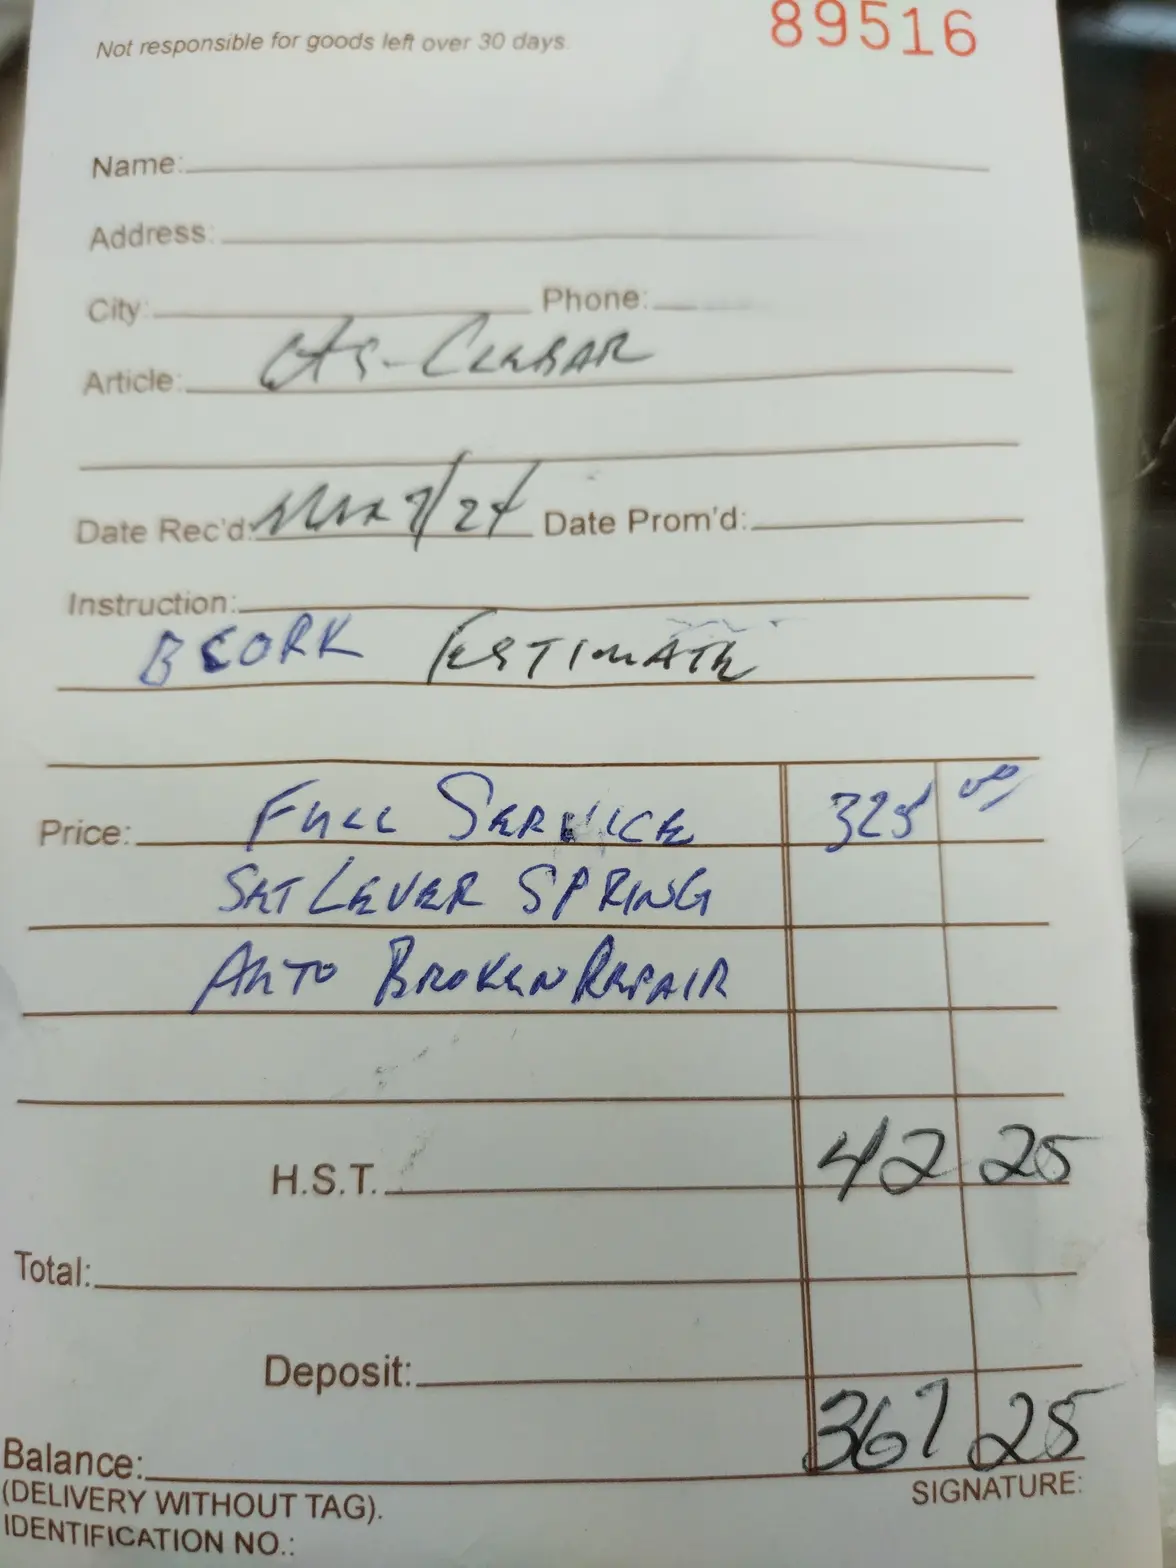 Not responsible for goods left over 30 days
89516
Name:
Address:
City: Phone:
Article:
Date Rec'd: Mar 7/24 Date Prom'd:
Instruction:
ESTIMATE
Price: FULL SERVICE 325 00
SET LEVER SPRING
AUTO BROKEN REPAIR
H.S.T. 42 25
Total:
Deposit:
Balance: 367 25
(DELIVERY WITHOUT TAG). SIGNATURE:
IDENTIFICATION NO.: